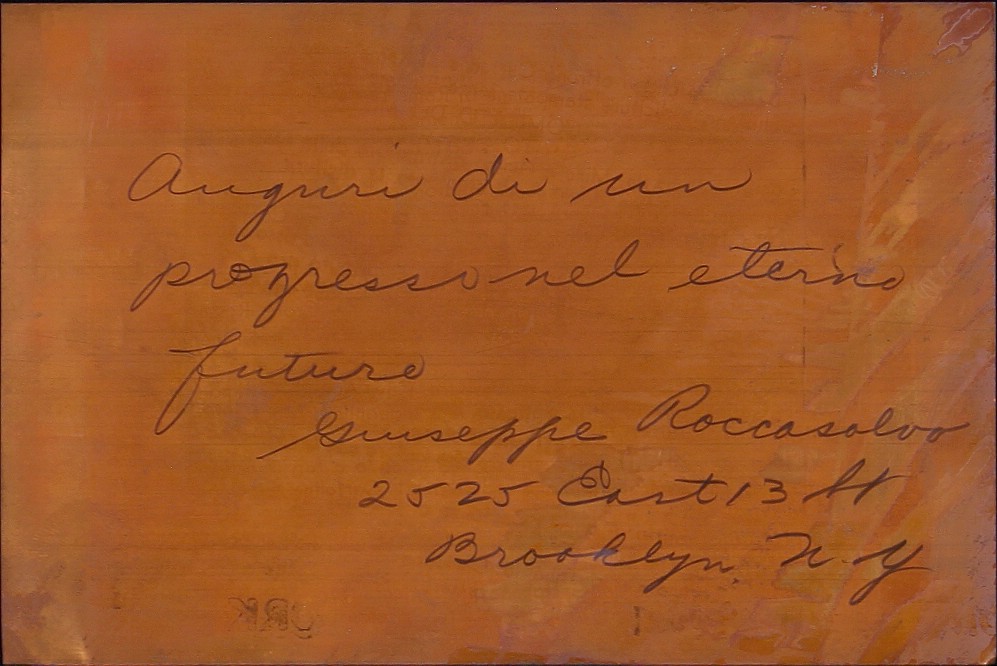 Auguri di un
progresso nel eterno
future
Giuseppe Roccasalvo
2525 East 13 St
Brooklyn, N.Y